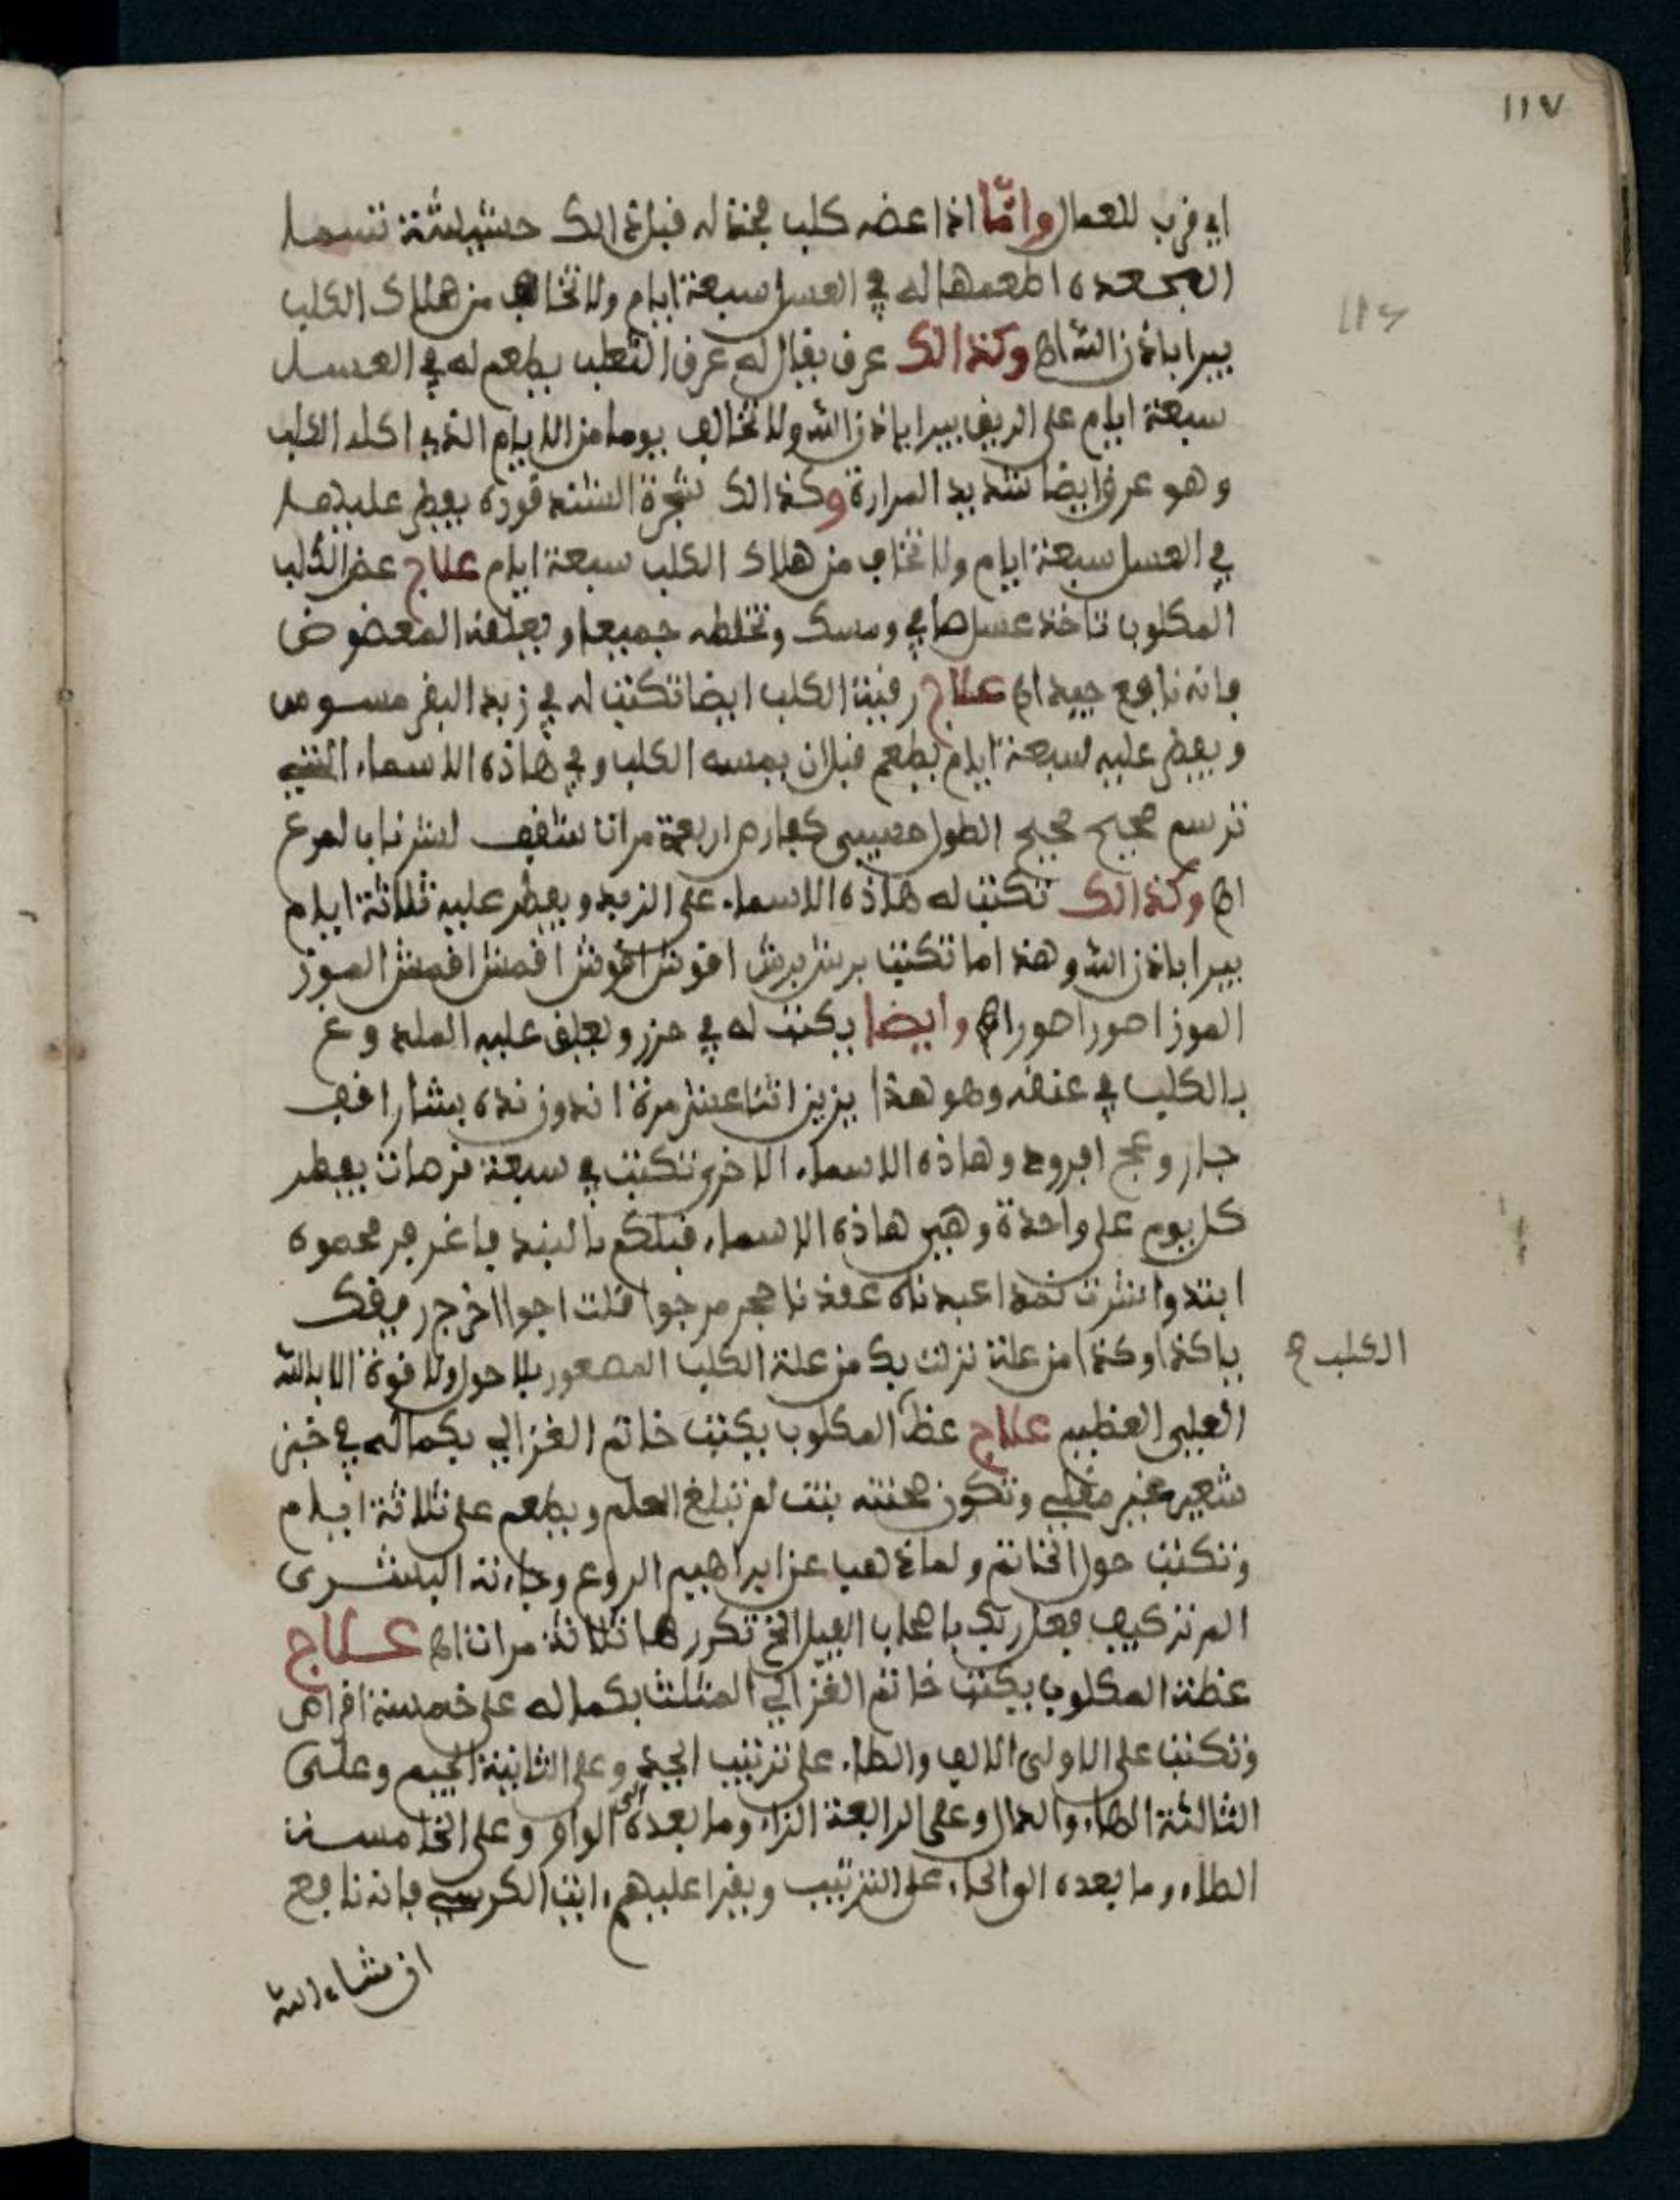 ١١٧
اي قرب للعمال واما اذا عضه كلب فخذ له قبل ذالك حشيشة تسما
الجعده اطعمها له في العسل سبعة ايام ولا تخاف من هلاك الكلب
يبرا باذن الله اه وكذالك عرق يقال له عرق الثعلب يطعم له في العسل
سبعة ايام على الريق يبرا باذن الله ولا تخالف يوما من الايام الذي اكله الكلب
وهو عرق ايضا شديد المرارة وكذالك شجرة الشندقورة يفطر عليها
في العسل سبعة ايام ولا تخاف من هلاك الكلب سبعة ايام علاج عض الكلب
المكلوب تاخذ عسل صافي ومسك وتخلطه جميعا ويعلقه المعضوض
فانه نافع جيد اه علاج رقية الكلب ايضا تكتب له في زبد البقر مسوس
ويفطر عليه سبعة ايام يطعم قبل ان يمسه الكلب وفي هاذه الاسماء التي
ترسم صحيح صحيح الطول اربعة مرات
اه وكذالك تكتب له هاذه الاسماء على الزبد ويفطر عليه ثلاثة ايام
يبرا باذن الله وهذا ما تكتب برش برش اقوش اقوش اقمش اقمش الموز
الموز احورا حورا اه وايضا يكتب له في حرز ويعلق عليه الملدوغ
بالكلب في عنقه وهو هذا يزيز اثنا عشر مرة
وهاذه الاسماء الاخرى تكتب في سبعة ترمات يفطر
كل يوم على واحدة وهي هاذه الاسماء
اخرج رميقك
ياكذا وكذا من علة نزلت بك من علة الكلب المصعور بلا حول ولا قوة الا بالله
الكلب ح
العلي العظيم علاج عظة المكلوب يكتب خاتم الغزالي بكماله في خبز
شعير غير مقلي وتكون عجنته بنت لم تبلغ الحلم ويطعم على ثلاثة ايام
وتكتب حول الخاتم ولما ذهب عن ابراهيم الروع وجاءته البشرى
الم تر كيف فعل ربك باصحاب الفيل الخ تكررها ثلاثة مرات اه علاج
عظة المكلوب يكتب خاتم الغزالي المثلث بكماله على خمسة اقراص
وتكتب على الاولى الالف والطاء على ترتيب ابجد وعلى الثانية الجيم وعلى
الثالثة الهاء والدال وعلى الرابعة الزاء وما بعده الى الواو وعلى الخامسة
الطاء وما بعده الى الحاء على الترتيب ويقرا عليهم ايت الكرسي فانه نافع
ان شاء الله